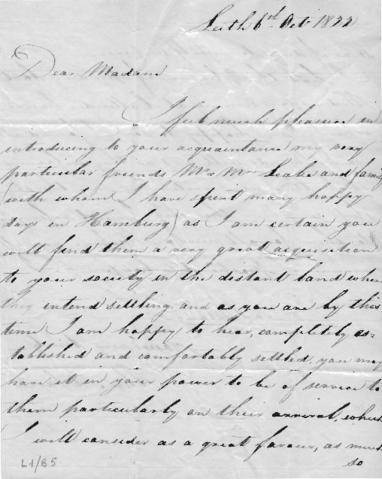 Leith 6th Oct. 1822
Dear Madam
I feel much pleasure in
introducing to your acquaintance my very
particular friends Mr & Mrs Leake and family
(with whom I have spent many happy
days in Hamburg) as I am certain you
will find them a very great acquisition
to your society in the distant land where
they intend settling, and as you are by this
time I am happy to hear, completely es-
tablished and comfortably settled, you may
have it in your power to be of service to
them particularly on their arrival, which
I will consider as a great favour, as much
so
L1/B5